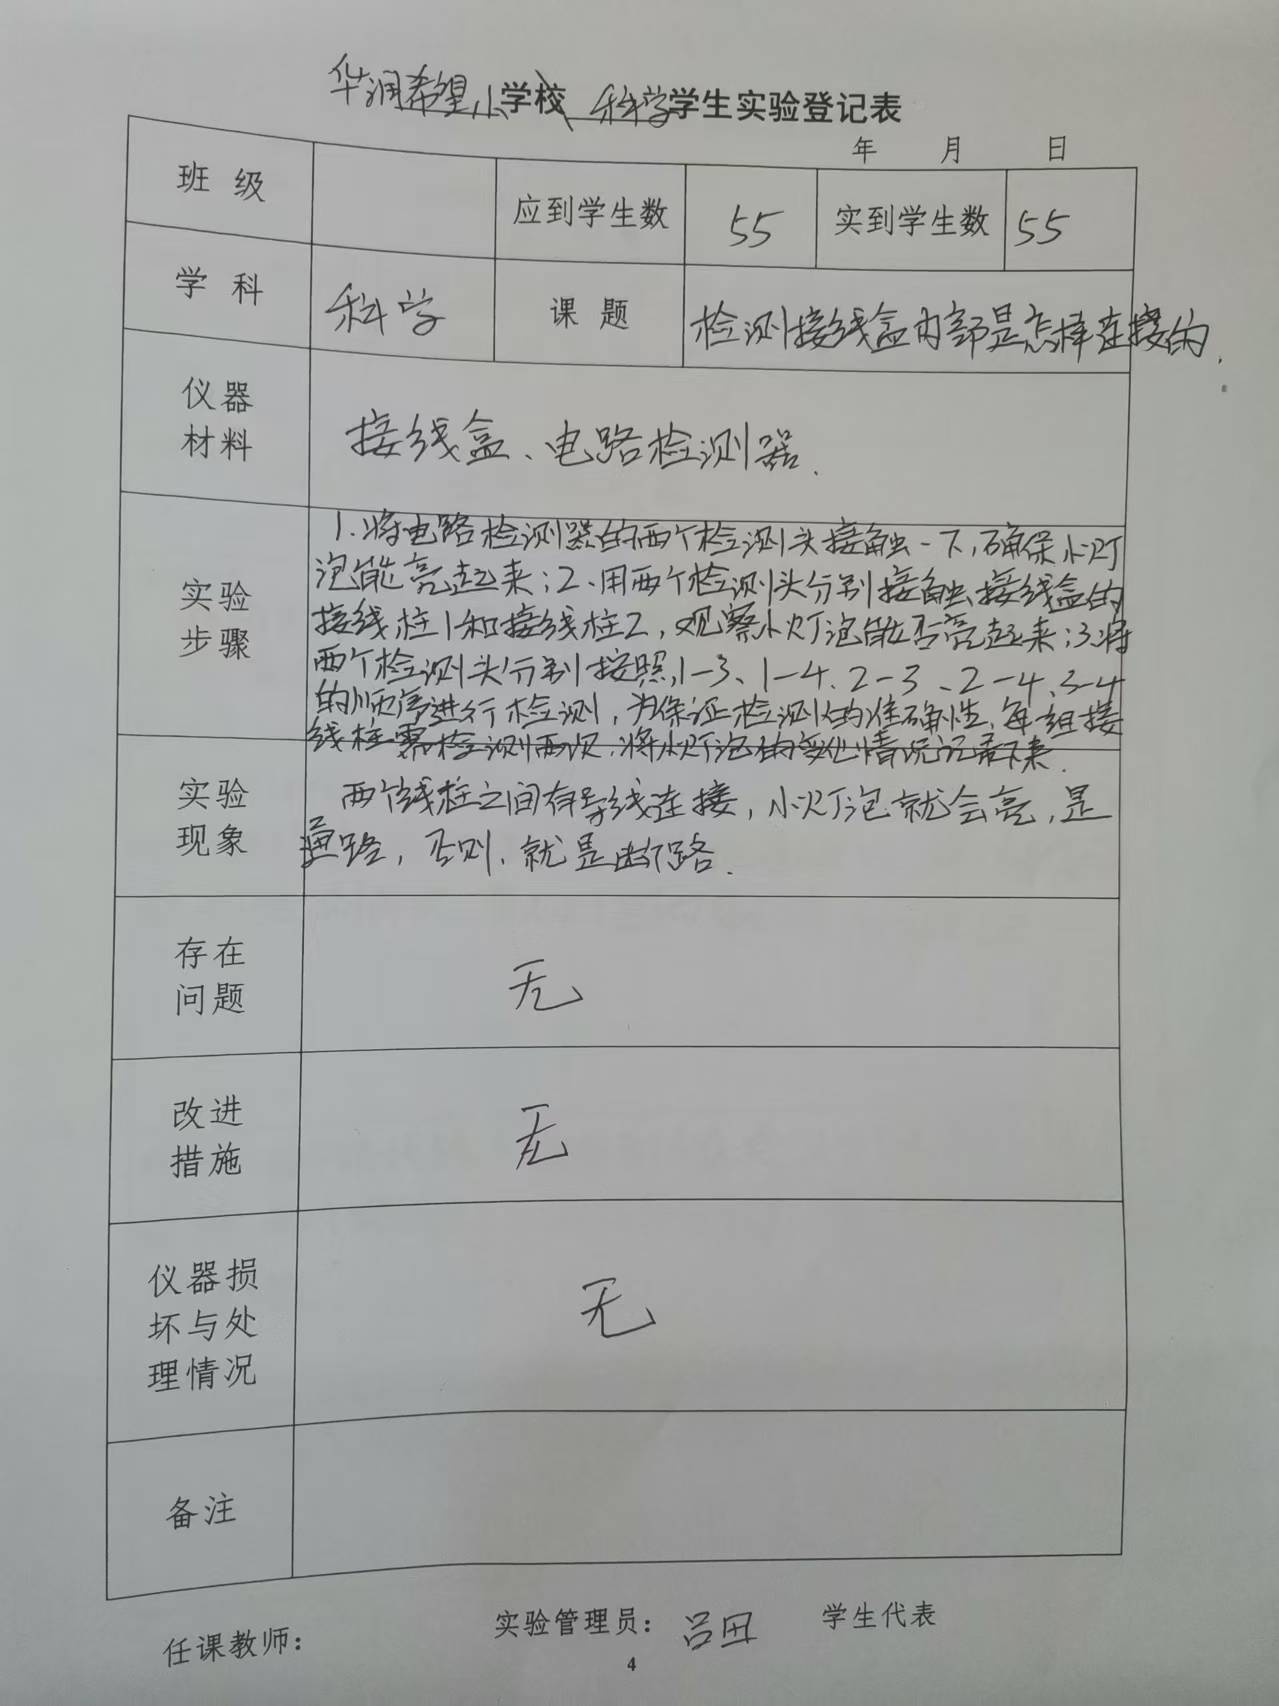 华润希望小学校 科学学生实验登记表
年 月 日
班 级 应到学生数 55 实到学生数 55
学 科 科学 课 题 检测接线盒内部是怎样连接的.
仪器
材料
接线盒、电路检测器.
实验
步骤
1.将电路检测器的两个检测头接触一下,确保小灯
泡能亮起来;2.用两个检测头分别接触接线盒的
接线柱1和接线柱2,观察小灯泡能否亮起来;3.将
两个检测头分别按照,1-3、1-4、2-3、2-4、3-4
的顺序进行检测,为保证检测的准确性,每组接
线柱需检测两次,将小灯泡的变化情况记录下来.
实验
现象
两个线柱之间有导线连接,小灯泡就会亮,是
通路,否则,就是断路.
存在
问题
无
改进
措施
无
仪器损
坏与处
理情况
无
备注
任课教师: 实验管理员: 吕田 学生代表
4